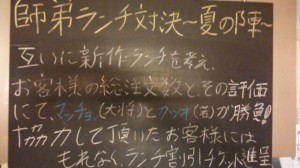 師弟ランチ対決～夏の陣～
互いに新作ランチを考え、
お客様の総注文数と、その評価
にて、マッチョ(大将)とクッオ(若)が勝負!!
協力して頂いたお客様には
もれなく、ランチ割引チケット進呈